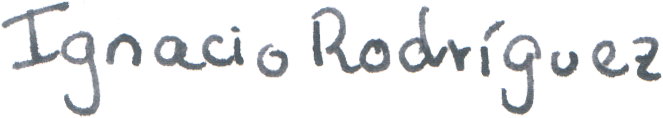 Ignacio Rodríguez